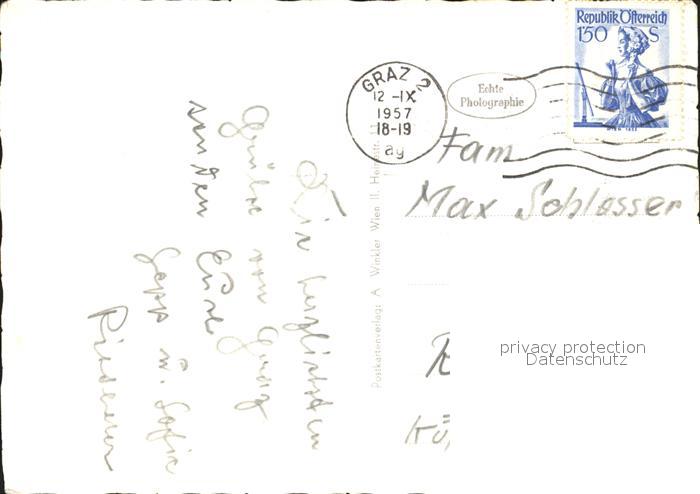 Republik Österreich
1'50 S
WIEN 1853
GRAZ 2
12 -IX
1957
18-19
ag
Echte
Photographie
Fam
Max Schlosser
K
Kü,
privacy protection
Datenschutz
Postkartenverlag: A Winkler Wien II, Heinestr.
Die herzlichsten
Grüße von Graz
senden Eure
Sepp u. Sofie